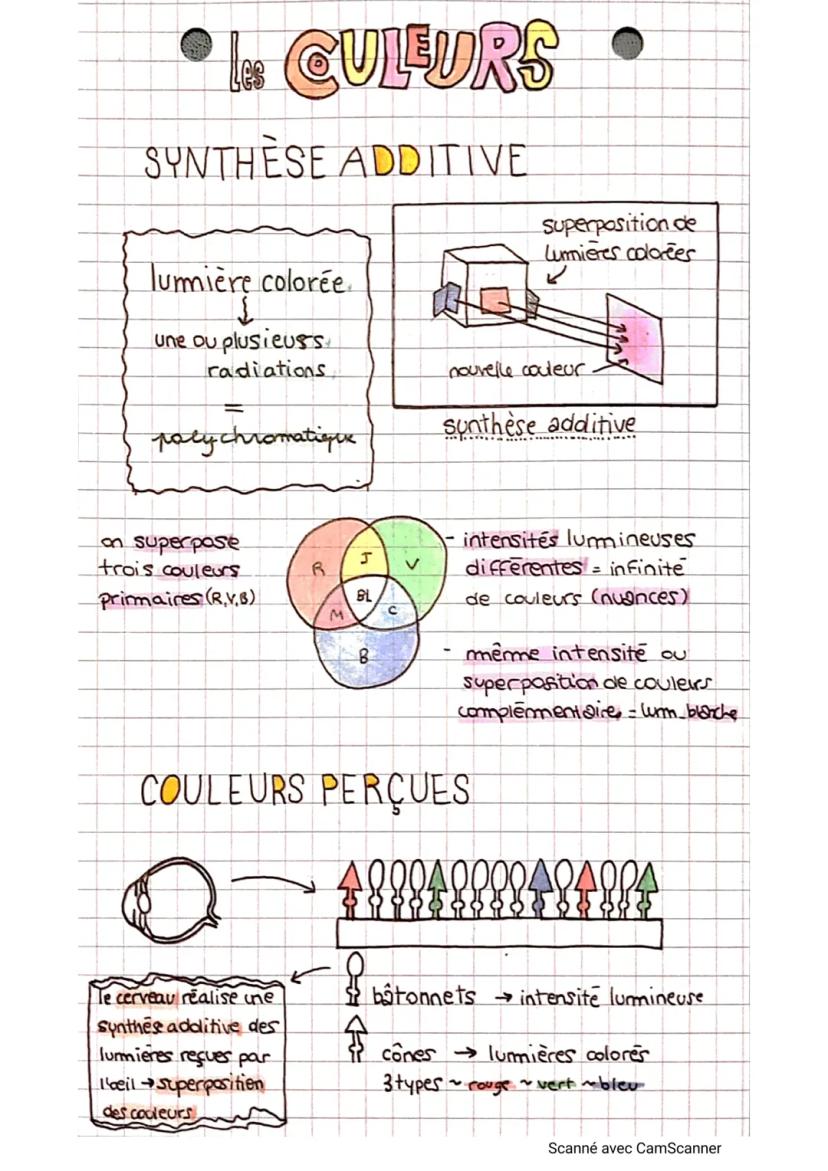 Les COULEURS
SYNTHÈSE ADDITIVE
lumière colorée
une ou plusieurs
radiations
=
polychromatique
superposition de
lumières colorées
nouvelle couleur
synthèse additive
on superpose
trois couleurs
primaires (R,V,B)
R
J
V
BL
M
C
B
- intensités lumineuses
différentes = infinité
de couleurs (nuances)
- même intensité ou
superposition de couleurs
complémentaires = lum. blanche
COULEURS PERÇUES
bâtonnets → intensité lumineuse
cônes → lumières colorés
3 types ~ rouge ~ vert ~ bleu
le cerveau réalise une
synthèse additive des
lumières reçues par
l'œil → superposition
des couleurs
Scanné avec CamScanner